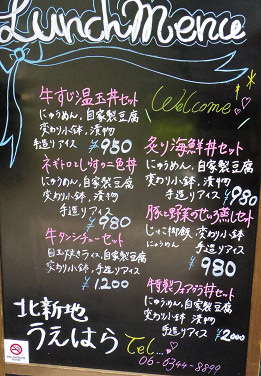 Lunch Menu
牛すじ温玉丼セット
にゅうめん,自家製豆腐
変わり小鉢,漬物
手造りアイス ¥950
ネギトロとしらす二色丼
にゅうめん,自家製豆腐
変わり小鉢,漬物
手造りアイス
¥980
牛タンシチューセット
目玉焼きライス,自家製豆腐
変わり小鉢,手造りアイス
¥1200
Welcome!
炙り海鮮丼セット
にゅうめん,自家製豆腐
変わり小鉢,漬物
手造りアイス ¥980
豚と野菜のせいろ蒸しセット
じゃこ御飯,変わり小鉢
にゅうめん 手造りアイス
¥980
牛特製フォアグラ丼セット
にゅうめん,自家製豆腐
変わり小鉢,漬物
手造りアイス ¥2000
北新地
うえはら
Tel...
06-6344-8899